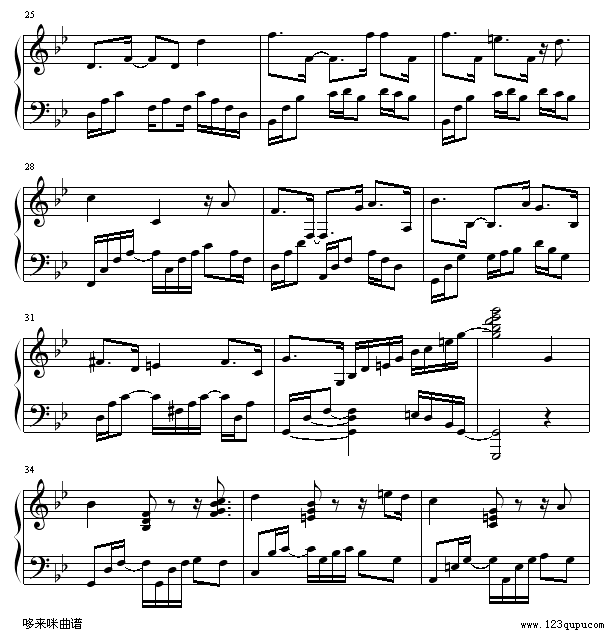 25
28
31
34
哆来咪曲谱
www.123qupu.com